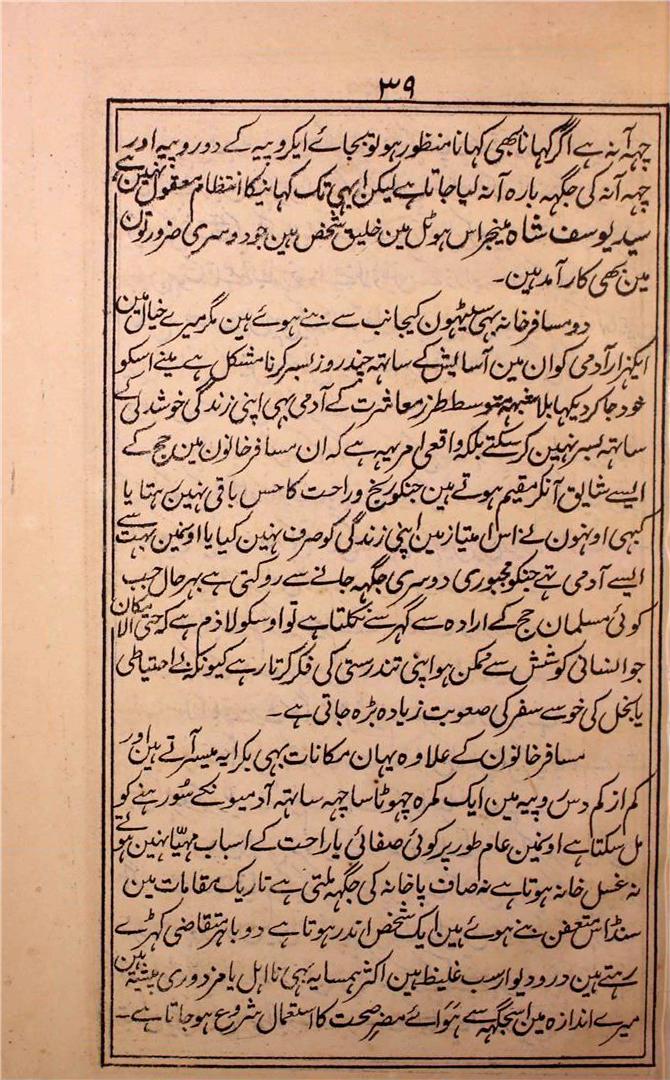 ۳۹
چہہ آنہ ہے اگر کہانا بھی کہانا منظور ہو تو بجائے ایکروپیہ کے دو روپیہ اور
چہہ آنہ کی جگہہ بارہ آنہ لیا جاتا ہے لیکن ابہی تک کہانیکا انتظام معقول نہین ہے
سید یوسف شاہ مینجر اس ہوٹل مین خلیق شخص ہین جو دوسری ضرورتون
مین بھی کار آمد ہین۔
دو مسافر خانہ بہی سیٹہون کیجانب سے بنے ہوئے ہین مگر میرے خیال مین
ایکہزار آدمی کو ان مین آسایش کے ساتہہ چند روز بسر کرنا مشکل ہے مینے اسکو
خود جا کر دیکہا بلا شبہہ متوسط طرز معاشرت کے آدمی بہی اپنی زندگی خوشدلی کے
ساتہہ بسر نہین کر سکتے بلکہ واقعی امر یہہ ہے کہ ان مسافر خانون مین حج کے
ایسے شایق آنکر مقیم ہوتے ہین جنکو رنج و راحت کا حس باقی نہین رہتا یا
کبہی اونہون نے اس امتیاز مین اپنی زندگی کو صرف نہین کیا یا اونمین بہت سے
ایسے آدمی تہے جنکو مجبوری دوسری جگہہ جانے سے روکتی ہے بہرحال جب
کوئی مسلمان حج کے ارادہ سے گہر سے نکلتا ہے تو اوسکو لازم ہے کہ حتی الامکان
جو انسانی کوشش سے ممکن ہو اپنی تندرستی کی فکر کرتا رہے کیونکہ بے احتیاطی
یا بخل کی خو سے سفر کی صعوبت زیادہ بڑہ جاتی ہے۔
مسافر خانون کے علاوہ یہان مکانات بہی بکرایہ میسر آتے ہین اور
کم از کم دس روپیہ مین ایک کمرہ چہوٹا سا چہہ ساتہہ آدمیونکے سور ہنے کو
مل سکتا ہے اونمین عام طور پر کوئی صفائی یا راحت کے اسباب مہیّا نہین ہوتے
نہ غسل خانہ ہوتا ہے نہ صاف پاخانہ کی جگہہ ملتی ہے تاریک مقامات مین
سنڈاس متعفن بنے ہوئے ہین ایک شخص اندر ہوتا ہے دو باہر متقاضی کہڑے
رہتے ہین در و دیوار سب غلیظ ہین اکثر ہمسایہ بہی نا اہل یا مزدوری پیشہ ہین
میرے اندازہ مین اسجگہہ سے ہوائے مضر صحت کا استعمال شروع ہو جاتا ہے۔